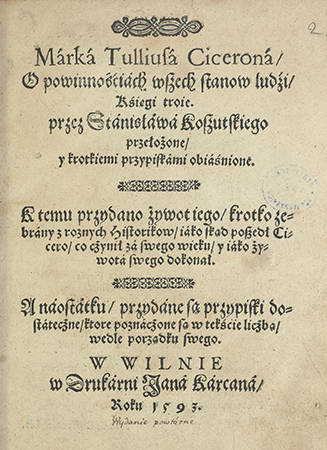 2
Márká Tulliusá Ciceroná/
O powinnośćiách wszech stanow ludźi/
Kśięgi troie.
przez Stánisłáwá Koszutskiego
przełożone/
y krotkiemi przypiskámi obiáśnione.
K temu przydano żywot iego/ krotko ze-
brány z roznych Historikow/ iáko skąd poszedł Ci-
cero/ co cżynił zá swego wieku/ y iáko ży-
wotá swego dokonał.
A náostátku/ przydáne są przypiski do-
státecżne/ ktore poznácżone są w tekśćie licżbą/
wedle porządku swego.
W WILNIE
w Drukárni Janá Kárcaná/
Roku 1593.
Wydanie powtórne